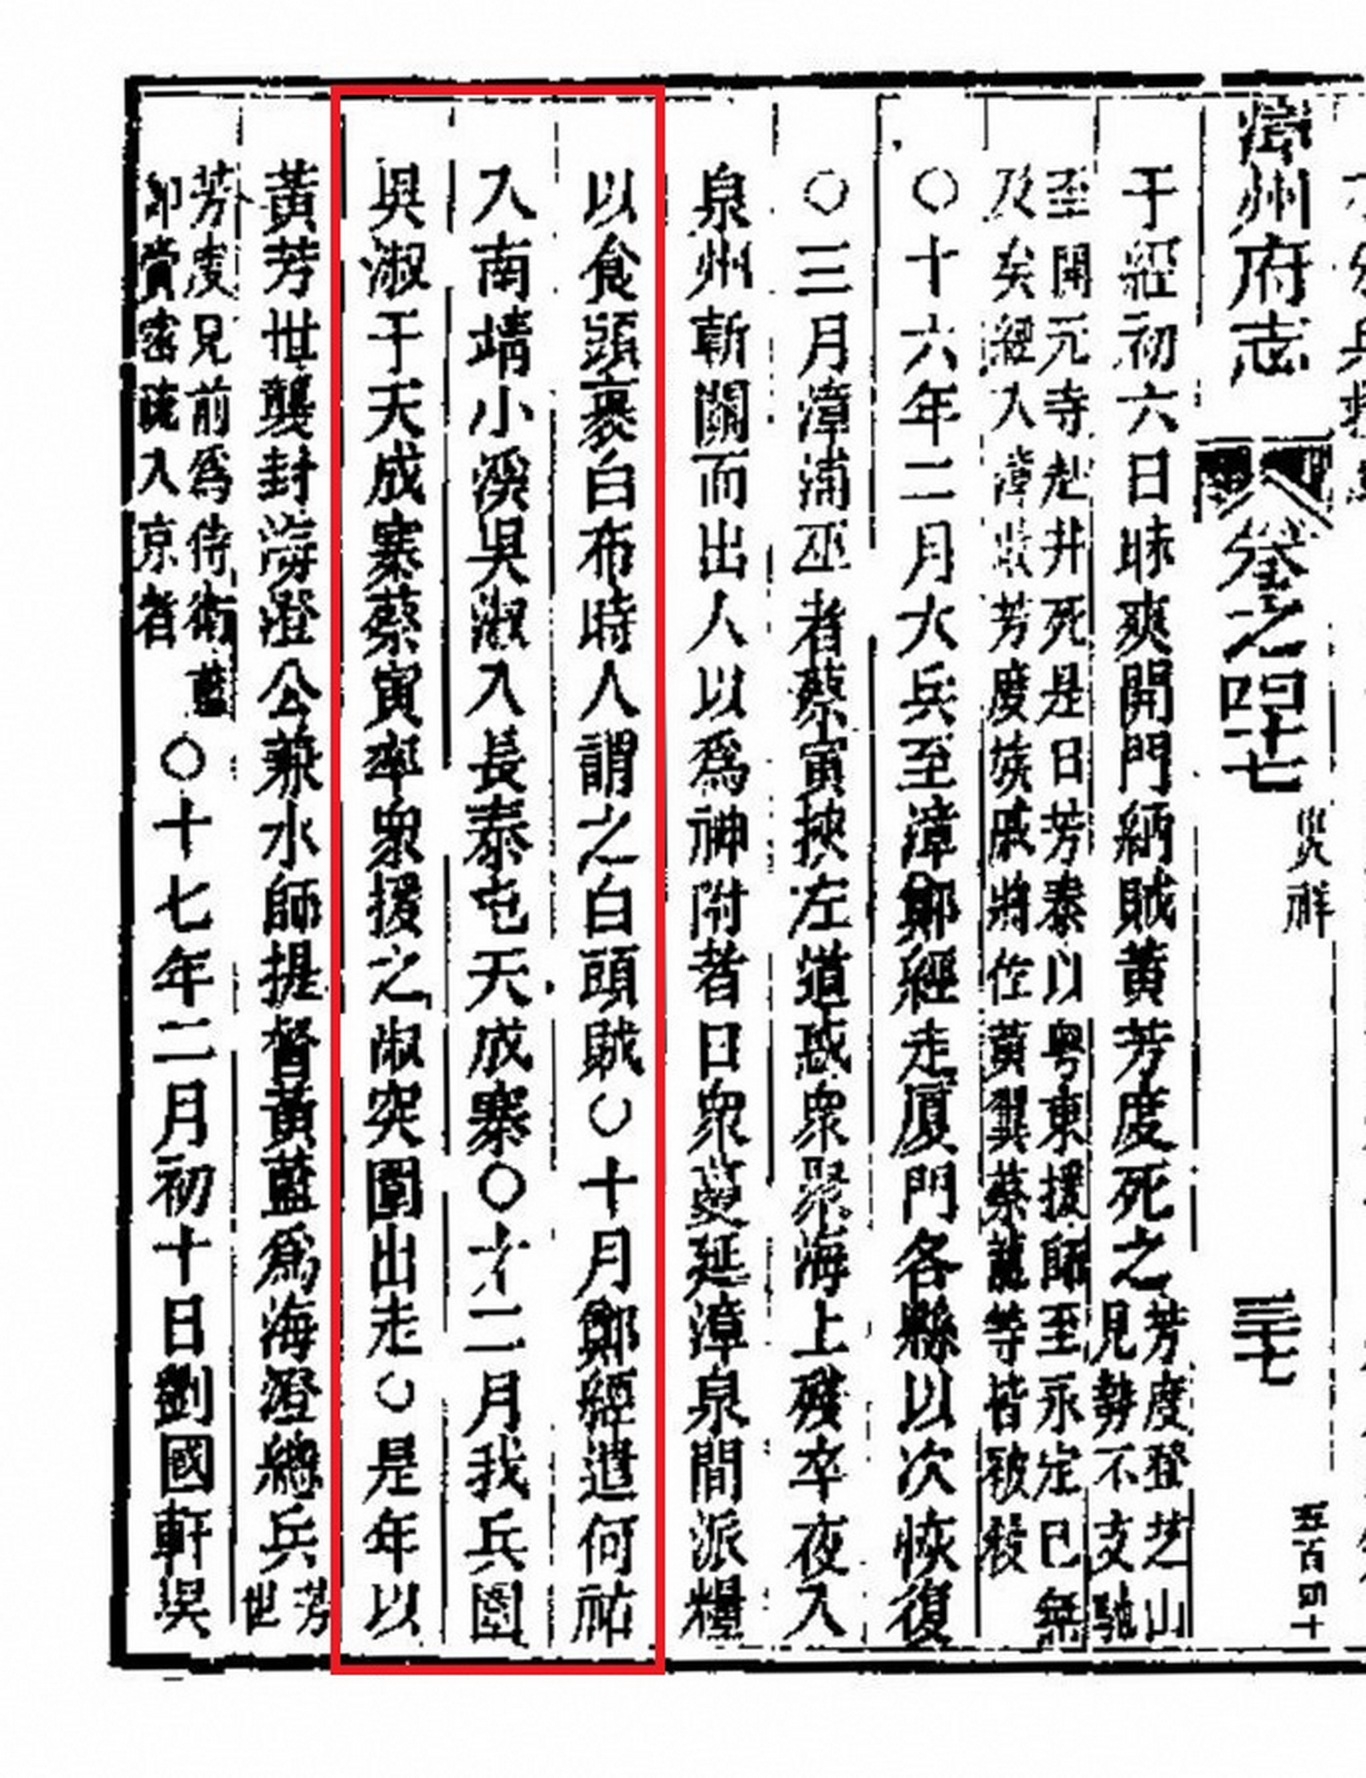 漳州府志
卷之四十七
災祥
三十七
五百四十
于經初六日昧爽開門納賊黃芳度死之芳度登芝山見勢不支馳
至開元寺赴井死是日芳泰以粵東援師至永定已無及矣經入漳芳度族戚將佐黃翼蔡龍等皆被殺
○十六年二月大兵至漳鄭經走厦門各縣以次恢復
○三月漳浦巫者蔡寅挾左道惑衆聚海上殘卒夜入
泉州斬關而出人以為神附者日衆蔓延漳泉間派糧
以食頭裹白布時人謂之白頭賊○十月鄭經遣何祐
入南靖小溪吳淑入長泰屯天成寨○十二月我兵圍
吳淑于天成寨蔡寅率衆援之淑突圍出走○是年以
黃芳世襲封海澄公兼水師提督黃藍為海澄總兵芳世
芳度兄前為侍衛藍卽賫密疏入京者○十七年二月初十日劉國軒吳